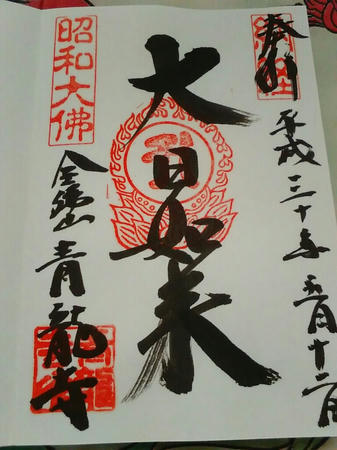 奉拝
平成三十年五月十二日
大日如来
昭和大佛
全佛山
青龍寺